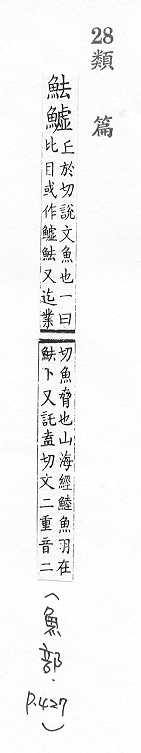 28
類篇
魼鱋
丘於切說文魚也一曰
比目或作鱋魼又迄業
切魚脅也山海經鯥魚羽在
魼下又託盍切文二重音二
(魚部.
p.427)